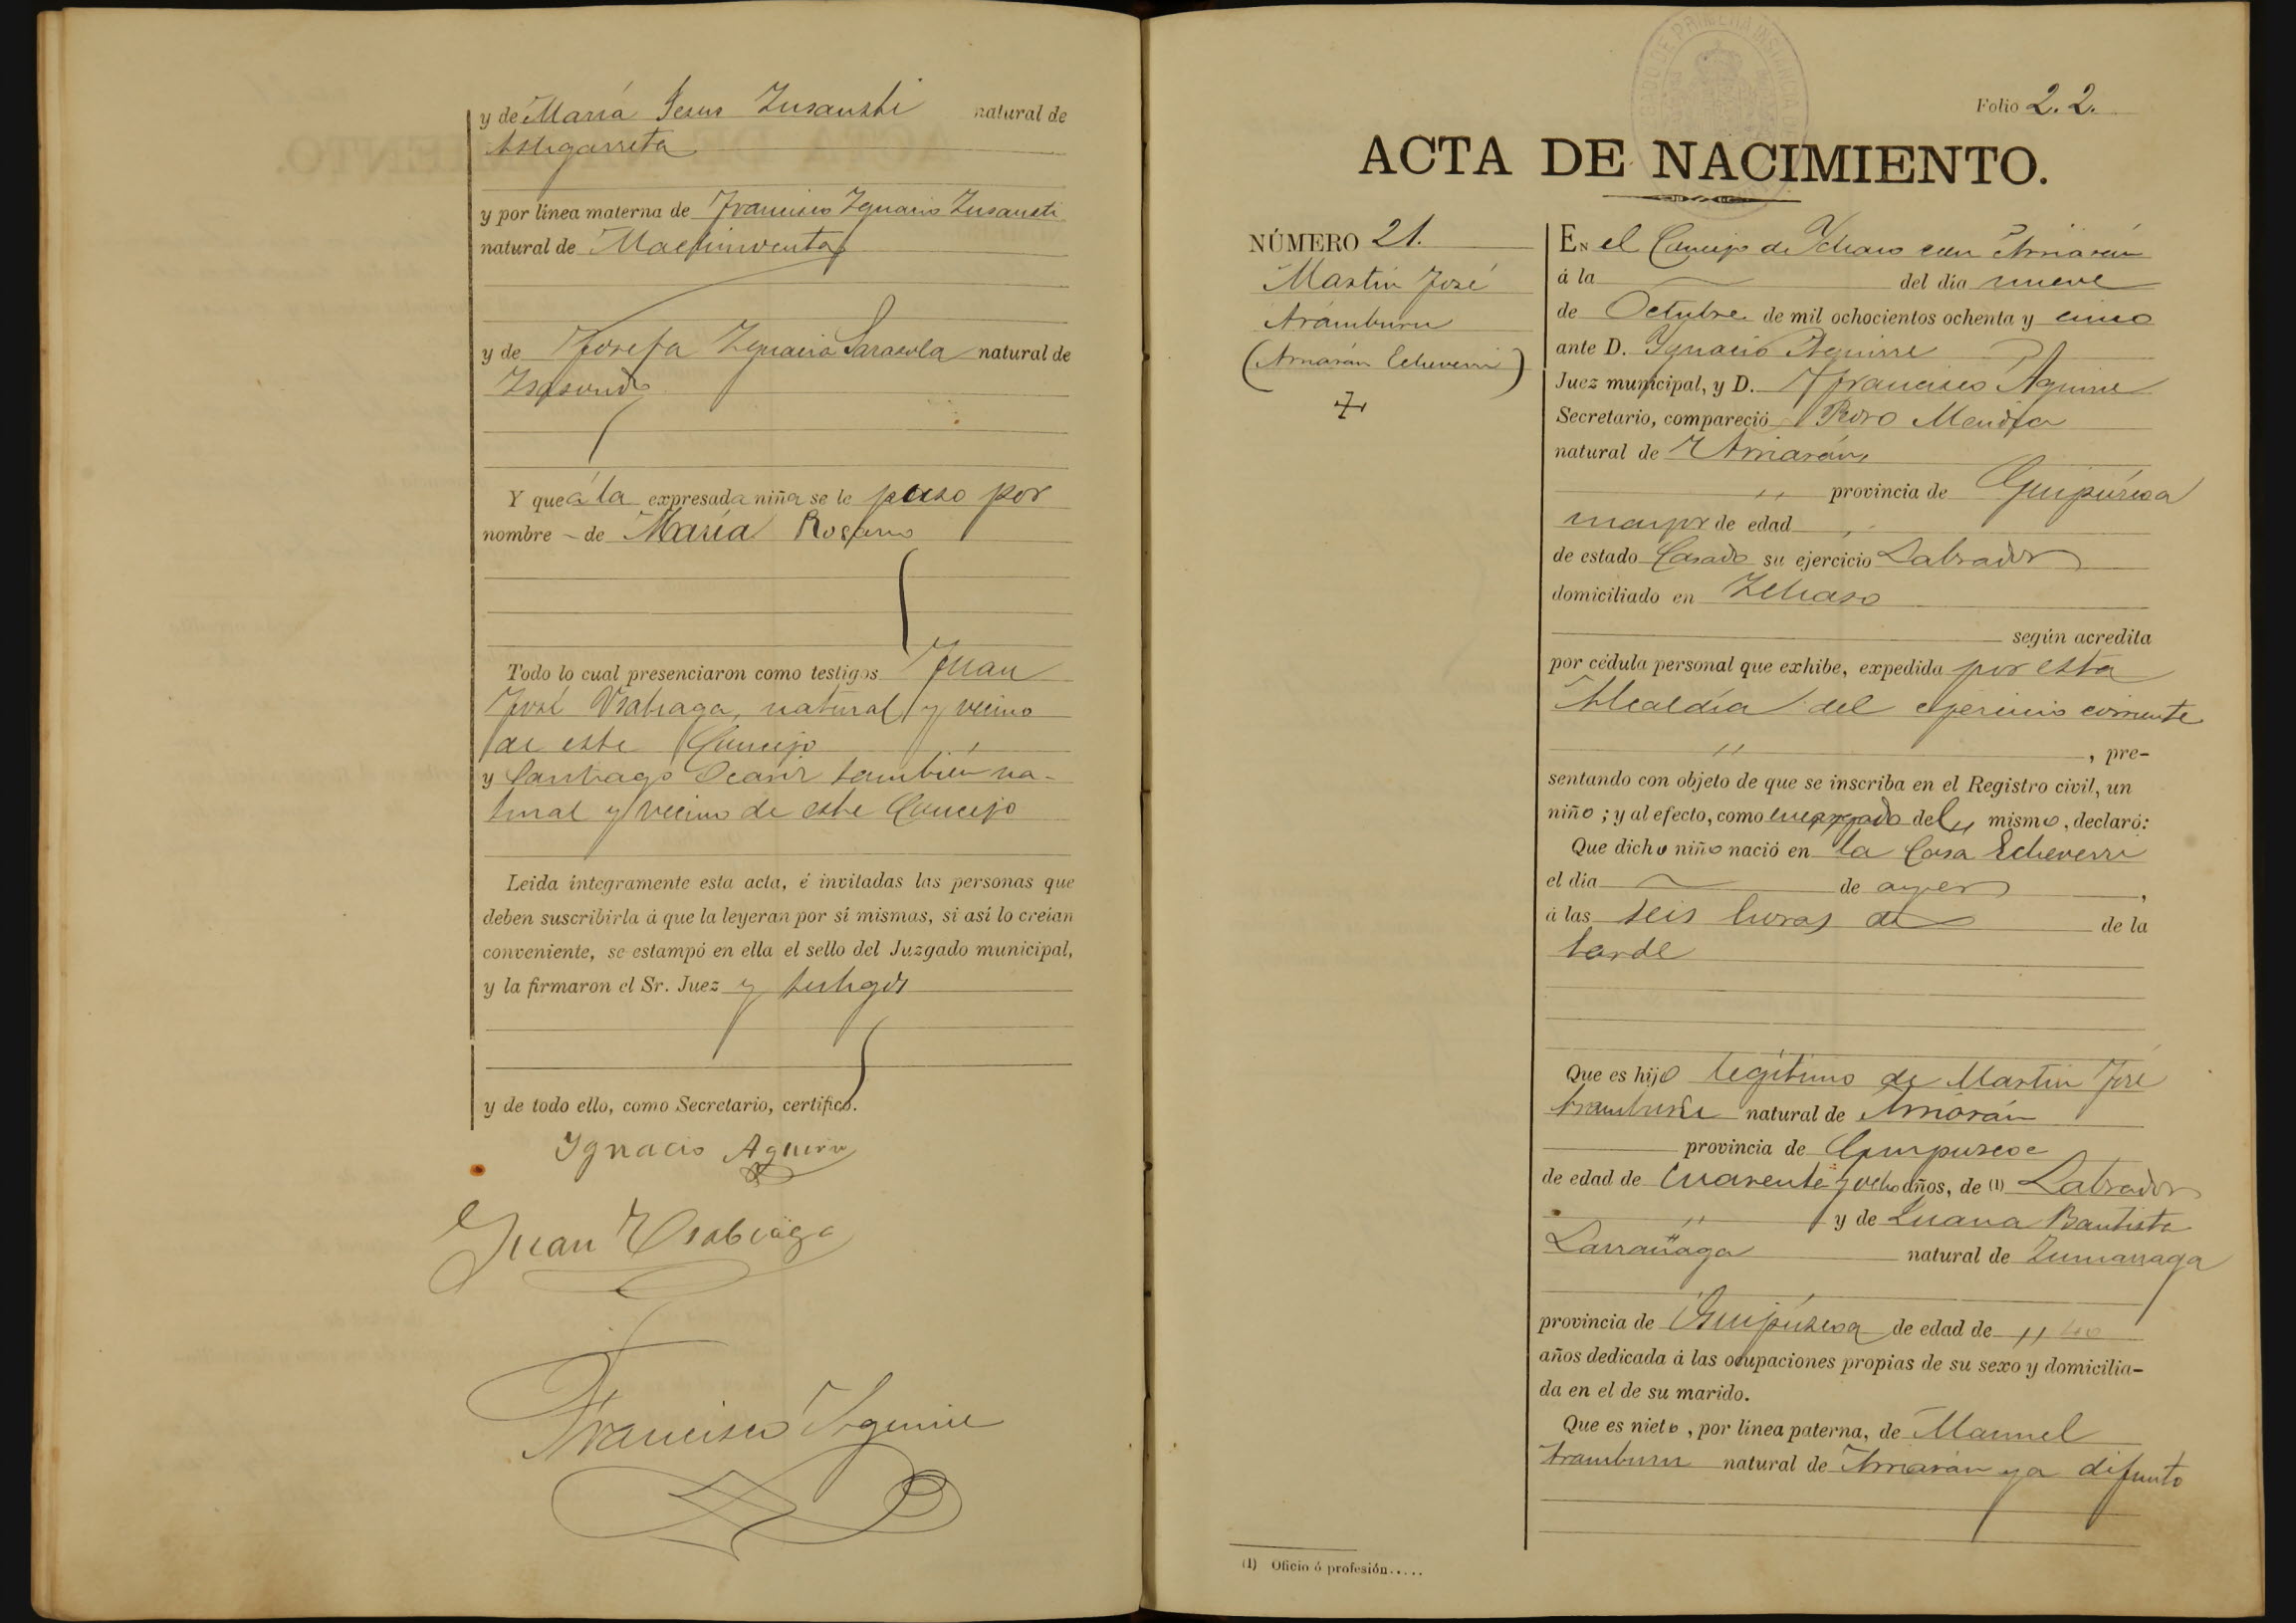 y de María Jesus Insausti natural de
Astigarreta
y por línea materna de Francisco Ignacio Insausti
natural de Machinventa
y de Josefa Ignacia Sarasola natural de
Isasondo
Y que á la expresada niña se le puso por
nombre de María Rosario
Todo lo cual presenciaron como testigos Juan
José Usabiaga, natural y vecino
de este Concejo
y Santiago también na-
tural y vecino de este Concejo
Leida íntegramente esta acta, é invitadas las personas que
deben suscribirla á que la leyeran por sí mismas, si así lo creían
conveniente, se estampó en ella el sello del Juzgado municipal,
y la firmaron el Sr. Juez y testigos
y de todo ello, como Secretario, certifico.
Ignacio Aguirre
Juan Usabiaga
Francisco Aguirre
Folio 22.
ACTA DE NACIMIENTO.
NÚMERO 21.
Martin José
Aramburu
(Arriarán Echeverri)
EN el Concejo de Ichaso con Arriarán
á la del día nueve
de Octubre de mil ochocientos ochenta y cinco
ante D. Ygnacio Aguirre
Juez municipal, y D. Francisco Aguirre
Secretario, compareció Mendia
natural de Arriarán
" provincia de Guipúzcoa
mayor de edad
de estado Casado su ejercicio Labrador
domiciliado en Ichaso
según acredita
por cédula personal que exhibe, expedida por esta
Alcaldía del ejercicio corriente
" , pre-
sentando con objeto de que se inscriba en el Registro civil, un
niño; y al efecto, como encargado del " mismo, declaró:
Que dicho niño nació en la Casa Echeverri
el día de ayer,
á las seis horas de de la
tarde
Que es hijo legítimo de Martin José
Aramburu natural de Arriarán
provincia de Guipuzcoa
de edad de Cuarenta y ocho años, de (1) Labrador
" y de Juana Bautista
Larrañaga natural de Zumarraga
provincia de Guipúzcoa de edad de "
años dedicada á las ocupaciones propias de su sexo y domicilia-
da en el de su marido.
Que es nieto, por línea paterna, de Manuel
Aramburu natural de Arriarán ya difunto
(1) Oficio ó profesión.....